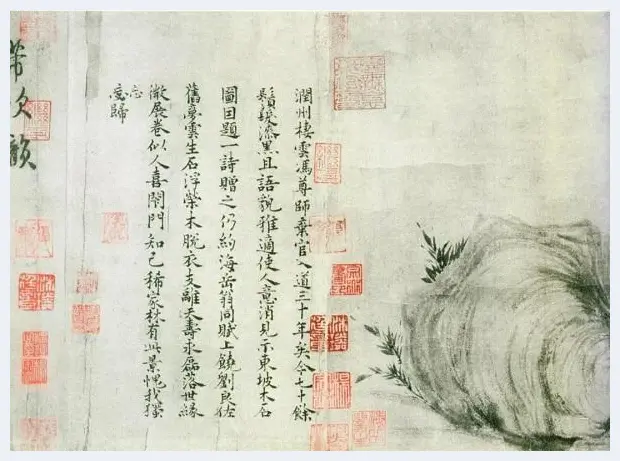 潤州棲雲馮尊師棄官入道三十年矣今七十餘
鬚髮漆黑且語貌雅適使人意消見示東坡木石
圖因題一詩贈之仍約海岳翁同賦上饒劉良佐
舊夢雲生石浮榮木脫衣支離天壽永磊落世緣
微展卷似人喜閉門知己稀家林有此景愧我獨
忘歸
芾次韻